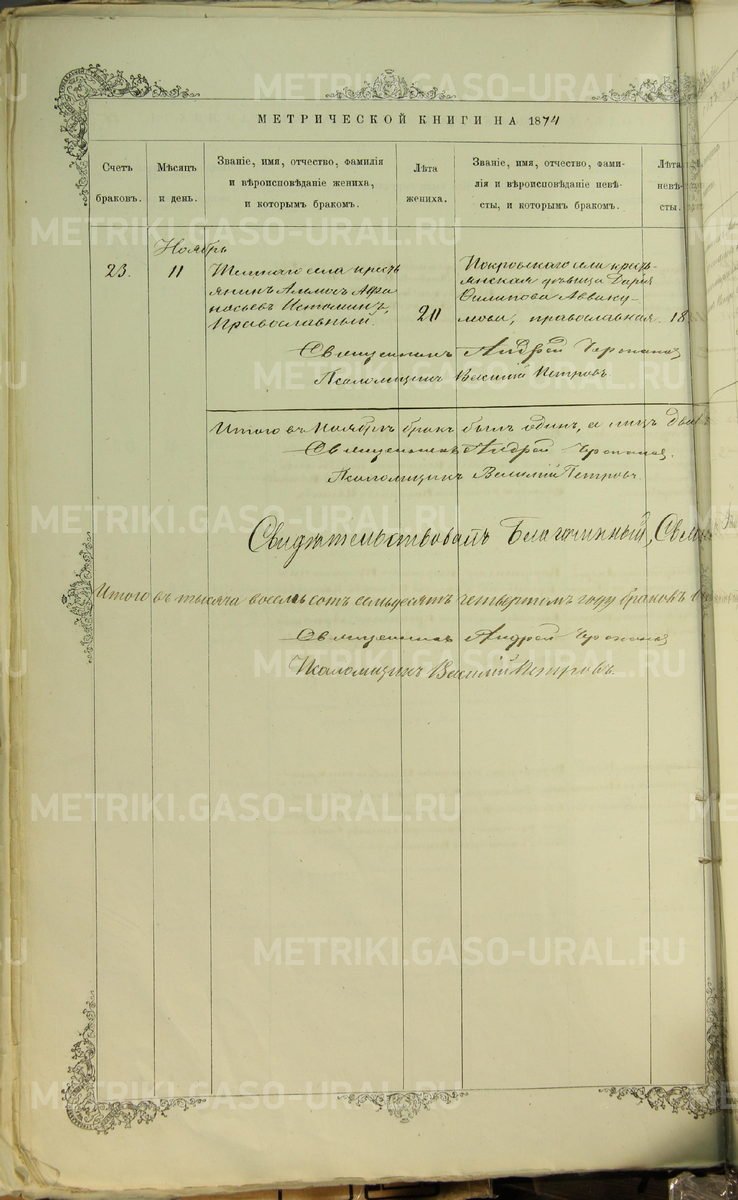 МЕТРИЧЕСКОЙ КНИГИ НА 1874
Счетъ браковъ.
Мѣсяцъ и день.
Званіе, имя, отчество, фамилія
и вѣроисповѣданіе жениха,
и которымъ бракомъ.
Лѣта жениха.
Званіе, имя, отчество, фами-
лія и вѣроисповѣданіе невѣ-
сты, и которымъ бракомъ.
Лѣта невѣ-сты.
Ноябрь
23. 11
села кресть
янинъ Афа
насьевъ Истоминъ,
Православный.
20
Покровскаго села кресть-
янская дѣвица Дарія
Филипова Авваку-
мова, православная. 18
Священникъ Андрей
Псаломщикъ Василій Петровъ.
Итого въ Ноябрѣ бракъ былъ одинъ, а лицъ два
Священникъ Андрей
Псаломщикъ Василій Петровъ.
Свидѣтельствовалъ Благочинный,
Итого въ тысяча восемьсотъ семьдесятъ четвертомъ году браковъ
Священникъ Андрей
Псаломщикъ Василій Петровъ.
METRIKI.GASO-URAL.RU